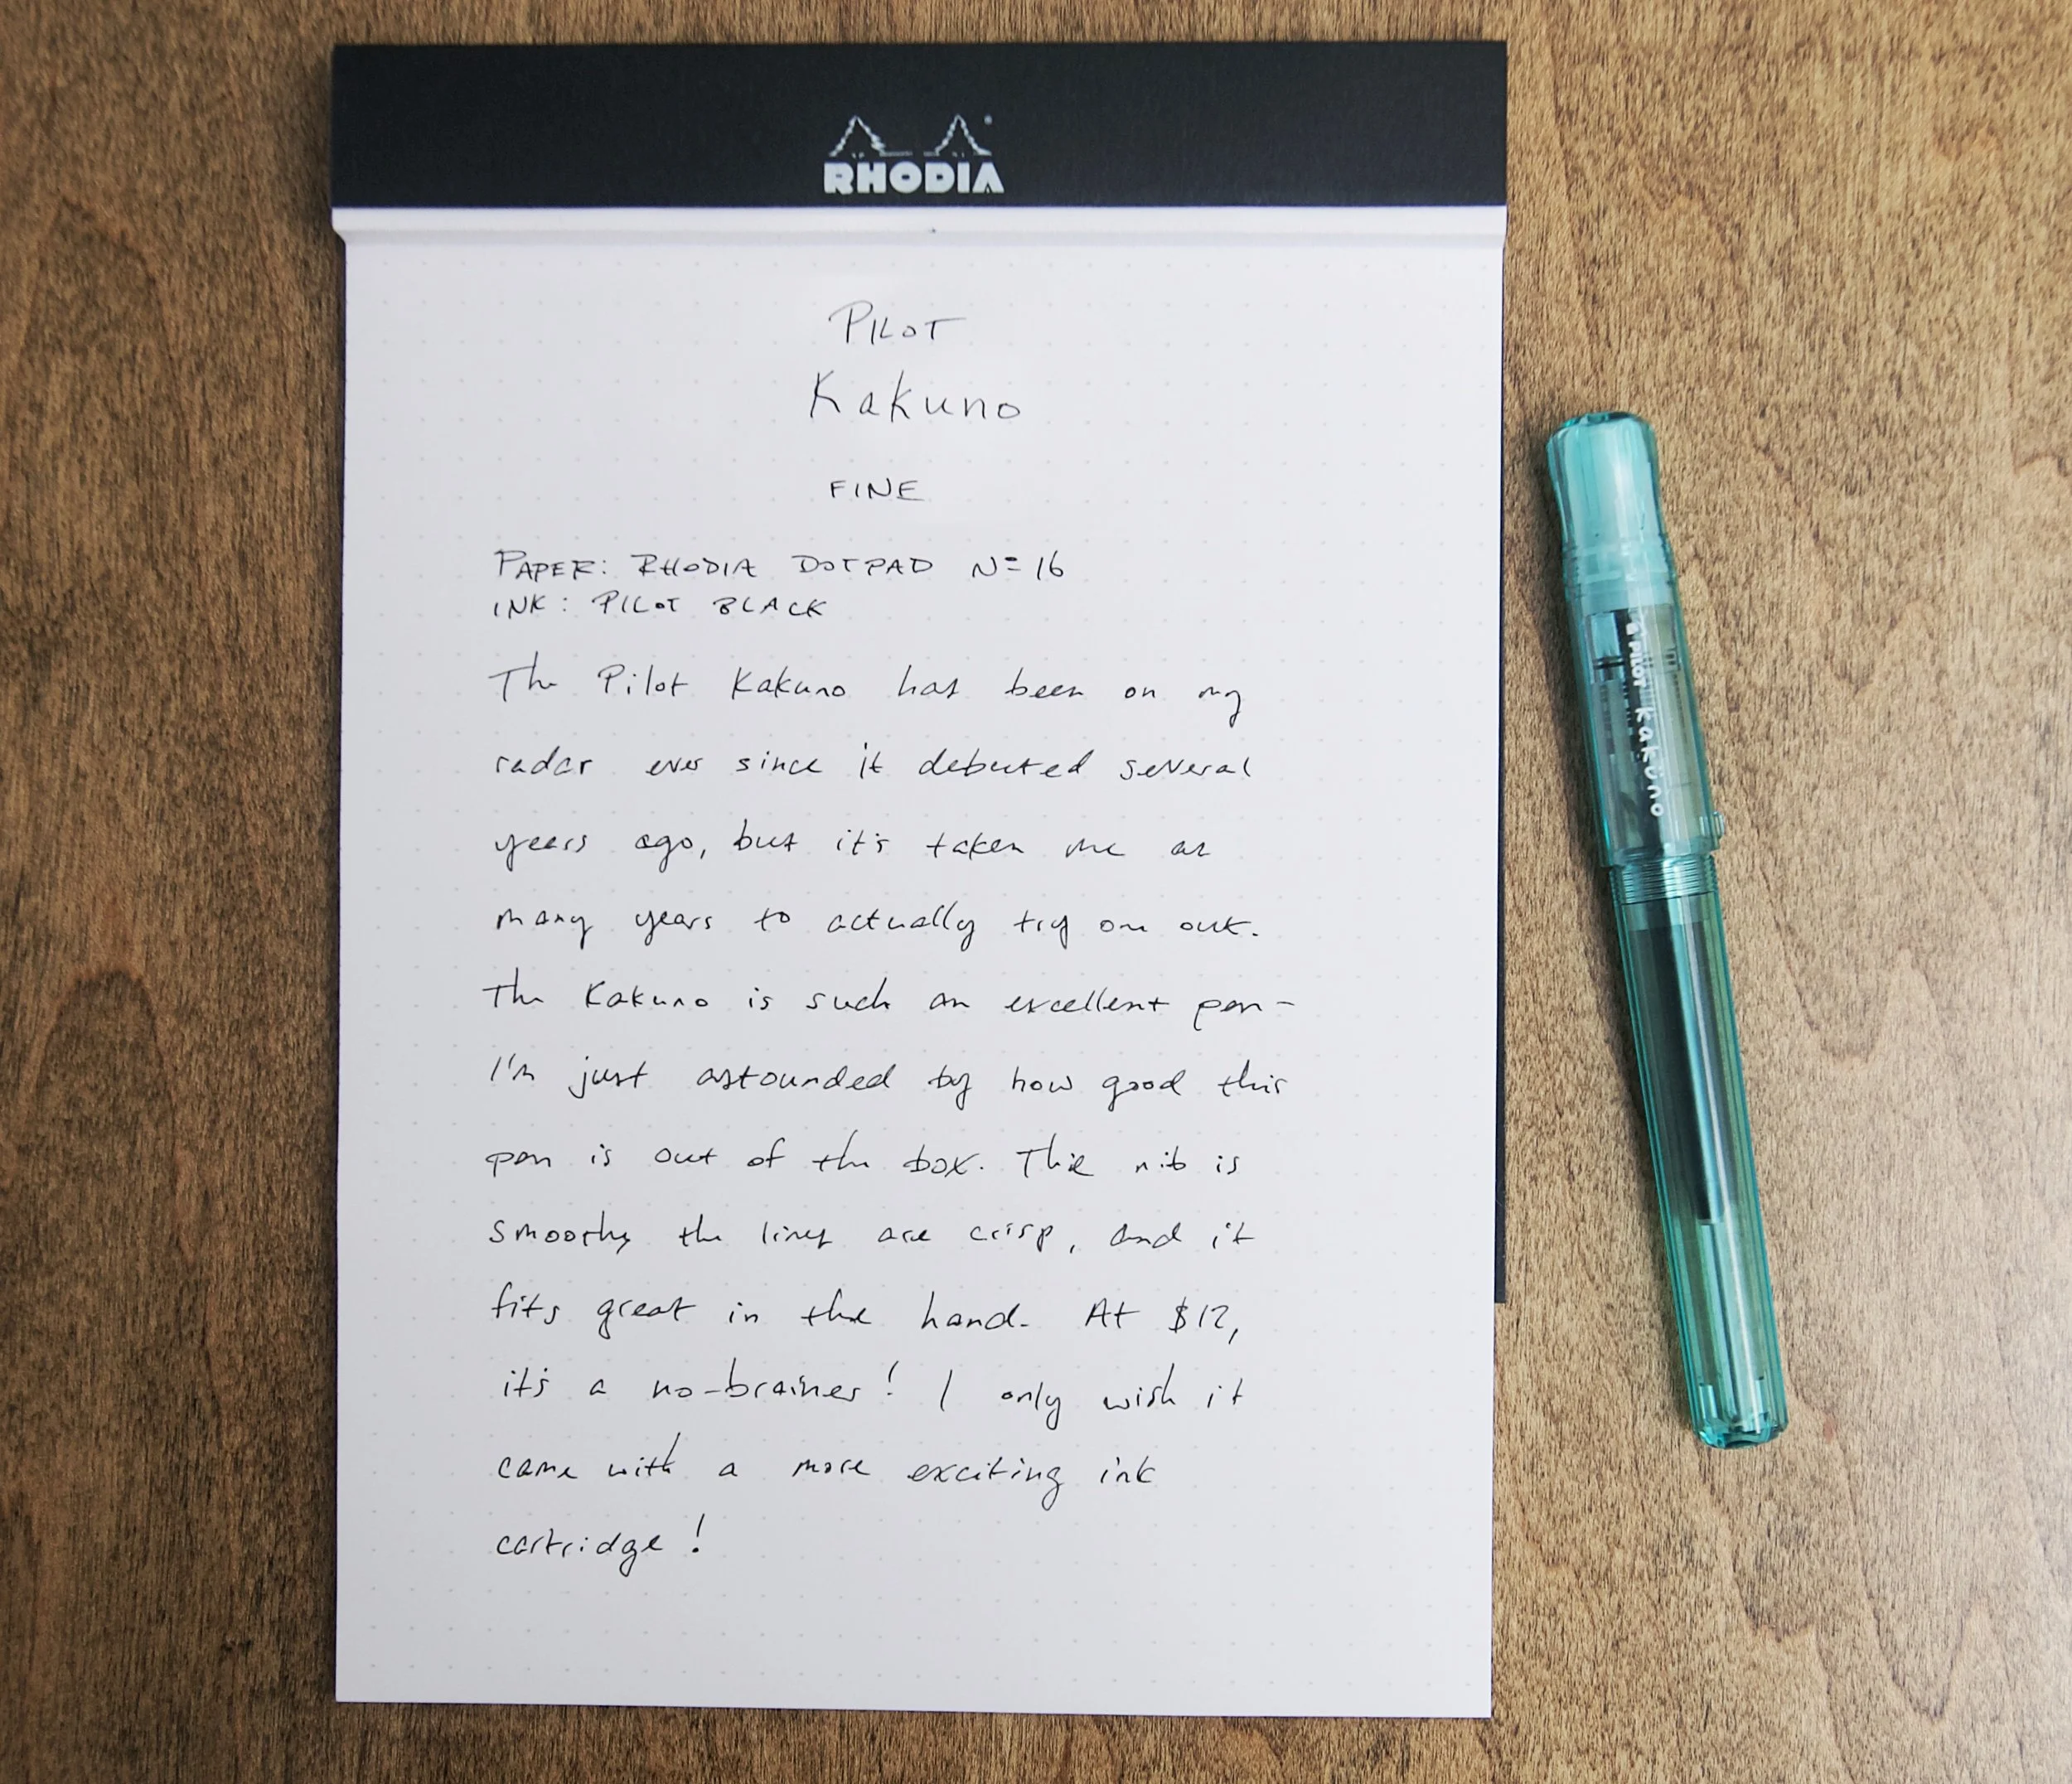 RHODIA
PILOT
Kakuno
FINE
PAPER: RHODIA DOTPAD Nº 16
INK: PILOT BLACK
The Pilot Kakuno has been on my
radar ever since it debuted several
years ago, but it's taken me as
many years to actually try one out.
The Kakuno is such an excellent pen—
I'm just astounded by how good this
pen is out of the box. The nib is
smooth, the lines are crisp, and it
fits great in the hand. At $12,
it's a no-brainer! I only wish it
came with a more exciting ink
cartridge!
PILOT kakuno